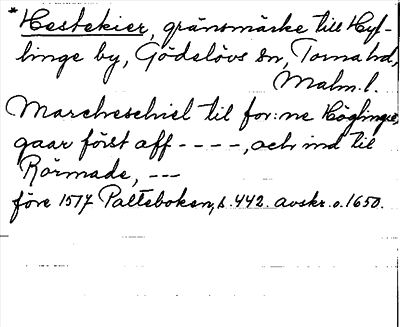 *Hestekier, gränsmärke till Hyl-
linge by, Gödelövs sn, Torna hd,
Malm. l.
Marcheschiel til for:ne Höglinge,
gaar först aff ----, och ind til
Rörmade, ---
före 1517 Palteboken, s. 442. avskr. o. 1650.